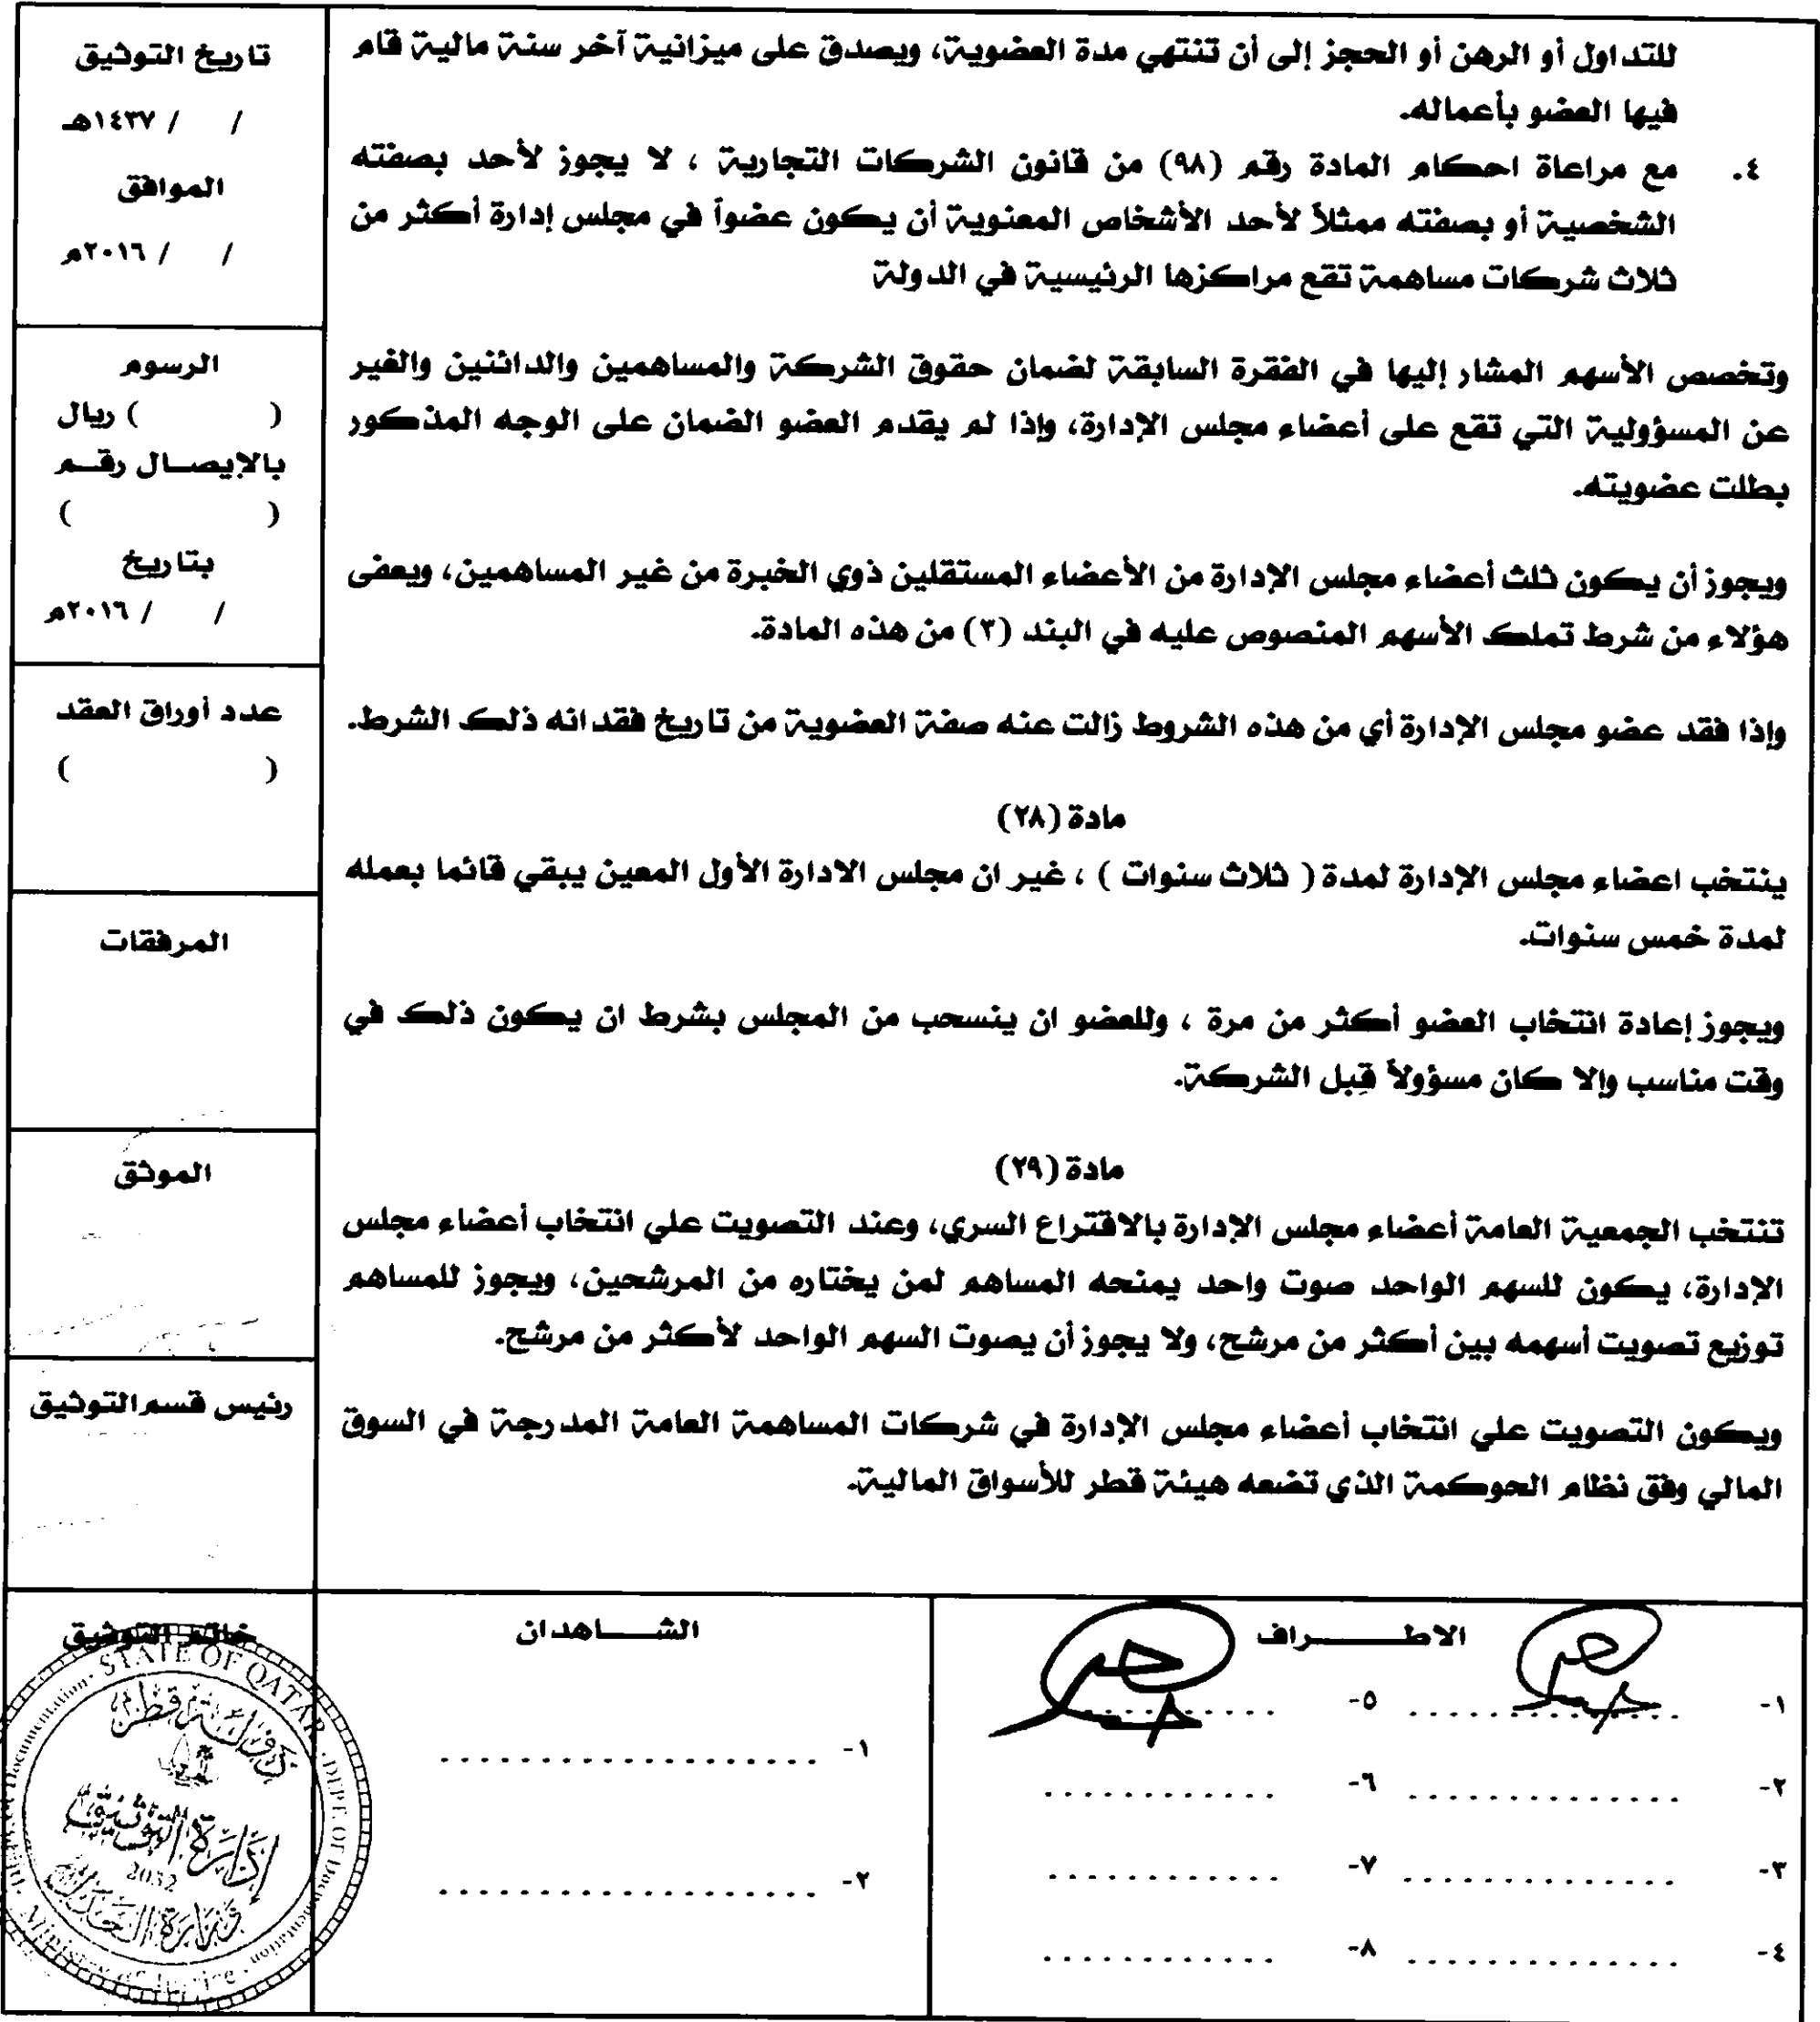 للتداول أو الرهن أو الحجز إلى أن تنتهي مدة العضوية، ويصدق على ميزانية آخر سنة مالية قام
فيها العضو بأعماله.
٤. مع مراعاة احكام المادة رقم (٩٨) من قانون الشركات التجارية ، لا يجوز لأحد بصفته
الشخصية أو بصفته ممثلاً لأحد الأشخاص المعنوية أن يكون عضواً في مجلس إدارة أكثر من
ثلاث شركات مساهمة تقع مراكزها الرئيسية في الدولة
وتخصص الأسهم المشار إليها في الفقرة السابقة لضمان حقوق الشركة والمساهمين والدائنين والغير
عن المسؤولية التي تقع على أعضاء مجلس الإدارة، وإذا لم يقدم العضو الضمان على الوجه المذكور
بطلت عضويته.
ويجوز أن يكون ثلث أعضاء مجلس الإدارة من الأعضاء المستقلين ذوي الخبرة من غير المساهمين، ويعفى
هؤلاء من شرط تملك الأسهم المنصوص عليه في البند (٣) من هذه المادة.
وإذا فقد عضو مجلس الإدارة أي من هذه الشروط زالت عنه صفة العضوية من تاريخ فقدانه ذلك الشرط.
مادة (٢٨)
ينتخب اعضاء مجلس الإدارة لمدة ( ثلاث سنوات ) ، غير ان مجلس الادارة الأول المعين يبقي قائما بعمله
لمدة خمس سنوات.
ويجوز إعادة انتخاب العضو أكثر من مرة ، وللعضو ان ينسحب من المجلس بشرط ان يكون ذلك في
وقت مناسب وإلا كان مسؤولاً قِبل الشركة.
مادة (٢٩)
تنتخب الجمعية العامة أعضاء مجلس الإدارة بالاقتراع السري، وعند التصويت علي انتخاب أعضاء مجلس
الإدارة، يكون للسهم الواحد صوت واحد يمنحه المساهم لمن يختاره من المرشحين، ويجوز للمساهم
توزيع تصويت أسهمه بين أكثر من مرشح، ولا يجوز أن يصوت السهم الواحد لأكثر من مرشح.
ويكون التصويت علي انتخاب أعضاء مجلس الإدارة في شركات المساهمة العامة المدرجة في السوق
المالي وفق نظام الحوكمة الذي تضعه هيئة قطر للأسواق المالية.
تاريخ التوثيق
/ / ١٤٣٧هـ
الموافق
/ / ٢٠١٦م
الرسوم
( ) ريال
بالإيصــال رقــم
( )
بتاريخ
/ / ٢٠١٦م
عدد أوراق العقد
( )
المرفقات
الموثق
رئيس قسم التوثيق
الاطـــــــراف
١- .............. ٥- ............
٢- .............. ٦- ............
٣- .............. ٧- ............
٤- .............. ٨- ............
الشــــاهدان
١- ...................
٢- ...................
خاتم التوثيق
STATE OF QATAR
دولة قطر
إدارة التوثيق
2032
وزارة العدل
Ministry of Justice